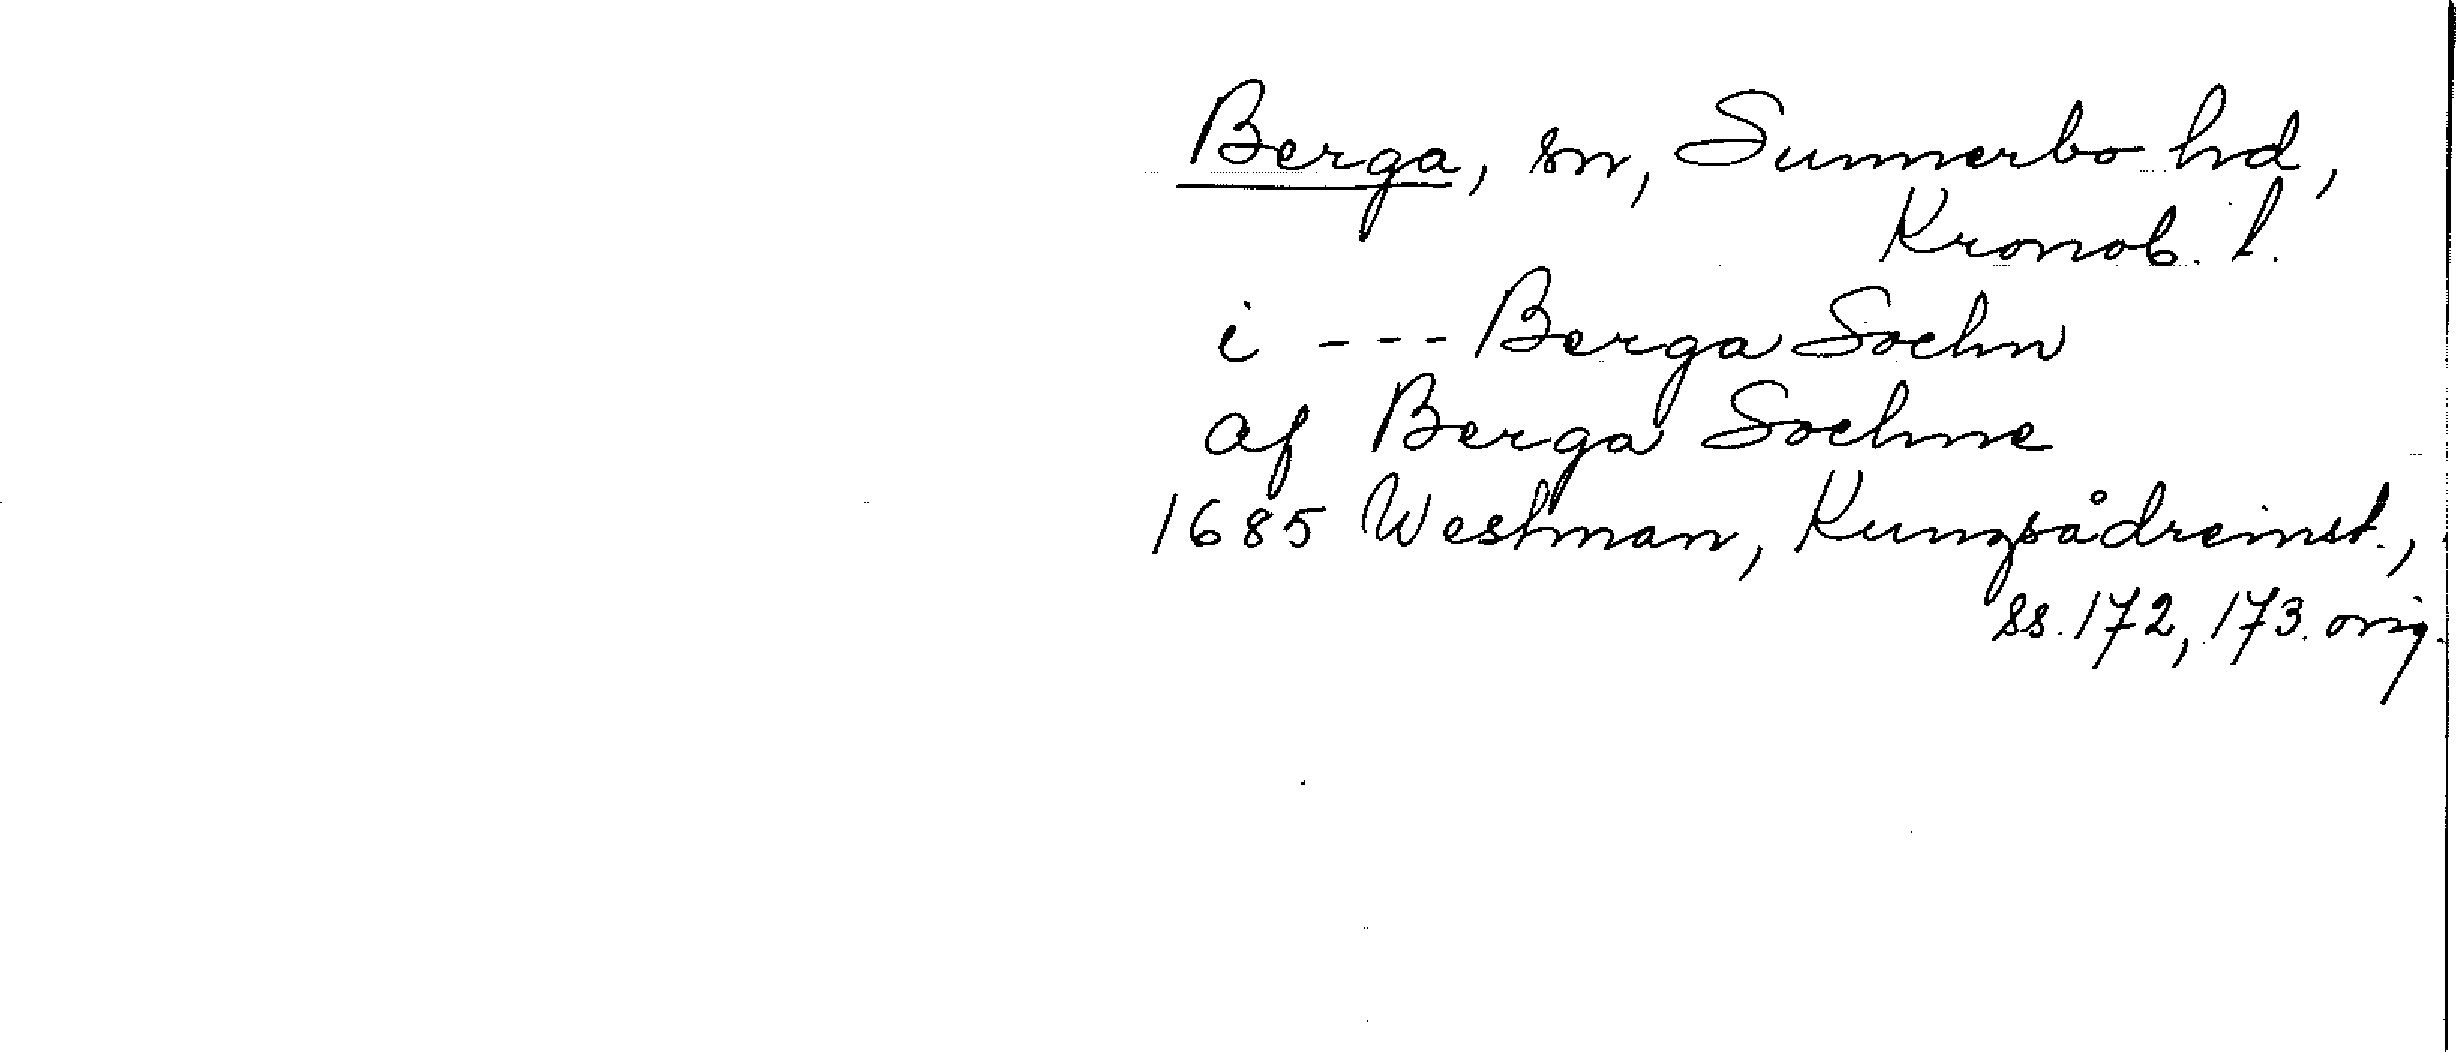 Berga, sn, Sunnerbo hd,
Kronob. l.
i --- Berga Sochn
af Berga Sochne
1685 Westman, Kungsådreinst.,
ss. 172, 173. orig.